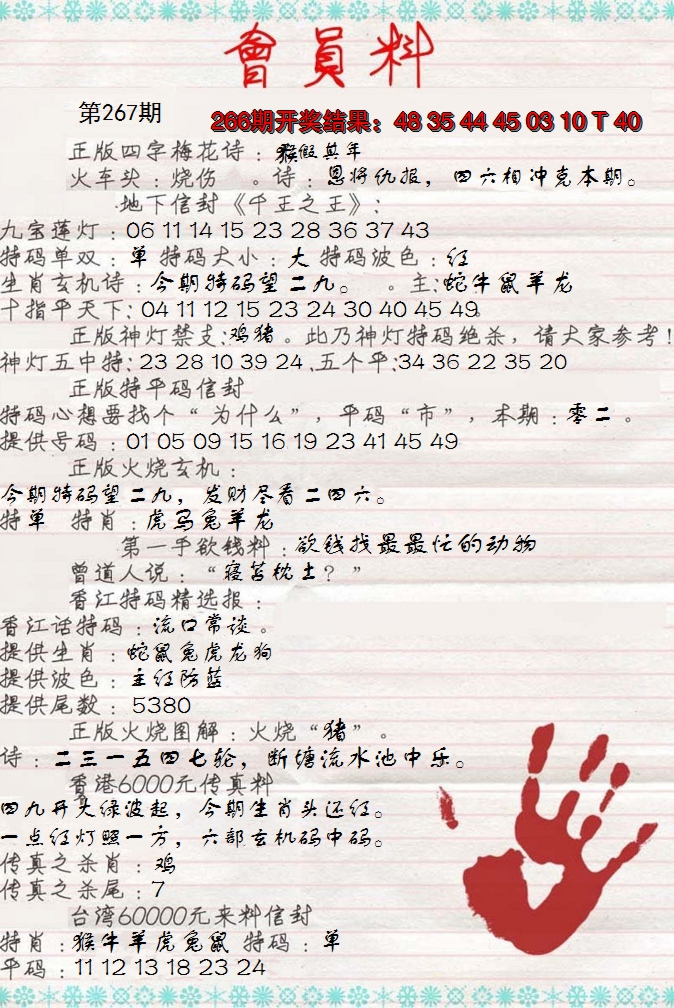 會員料
第267期
266期开奖结果：48 35 44 45 03 10 T 40
正版四字梅花诗：猴假其年
火车头：烧伤 。诗：恩将仇报，四六相冲克本期。
地下信封《千王之王》：
九宝莲灯：06 11 14 15 23 28 36 37 43
特码单双：单 特码大小：大 特码波色：红
生肖玄机诗：今期特码望二九。 。主：蛇牛鼠羊龙
十指平天下：04 11 12 15 23 24 30 40 45 49.
正版神灯禁支：鸡猪。此乃神灯特码绝杀，请大家参考！
神灯五中特：23 28 10 39 24 .五个平：34 36 22 35 20
正版特平码信封
特码心想要找个“为什么”，平码“市”，本期：零二。
提供号码：01 05 09 15 16 19 23 41 45 49
正版火烧玄机：
今期特码望二九，发财尽看二四六。
特单 特肖：虎马兔羊龙
第一手欲钱料：欲钱找最最忙的动物
曾道人说：“寝苫枕土？”
香江特码精选报：
香江话特码：流口常谈。
提供生肖：蛇鼠兔虎龙狗
提供波色：主红防蓝
提供尾数：5380
正版火烧图解：火烧“猪”。
诗：二三一五四七轮，断塘流水池中乐。
香港6000元传真料
四九开大绿波起，今期生肖头还红。
一点红灯照一方，六部玄机码中码。
传真之杀肖：鸡
传真之杀尾：7
台湾60000元来料信封
特肖：猴牛羊虎兔鼠 特码：单
平码：11 12 13 18 23 24